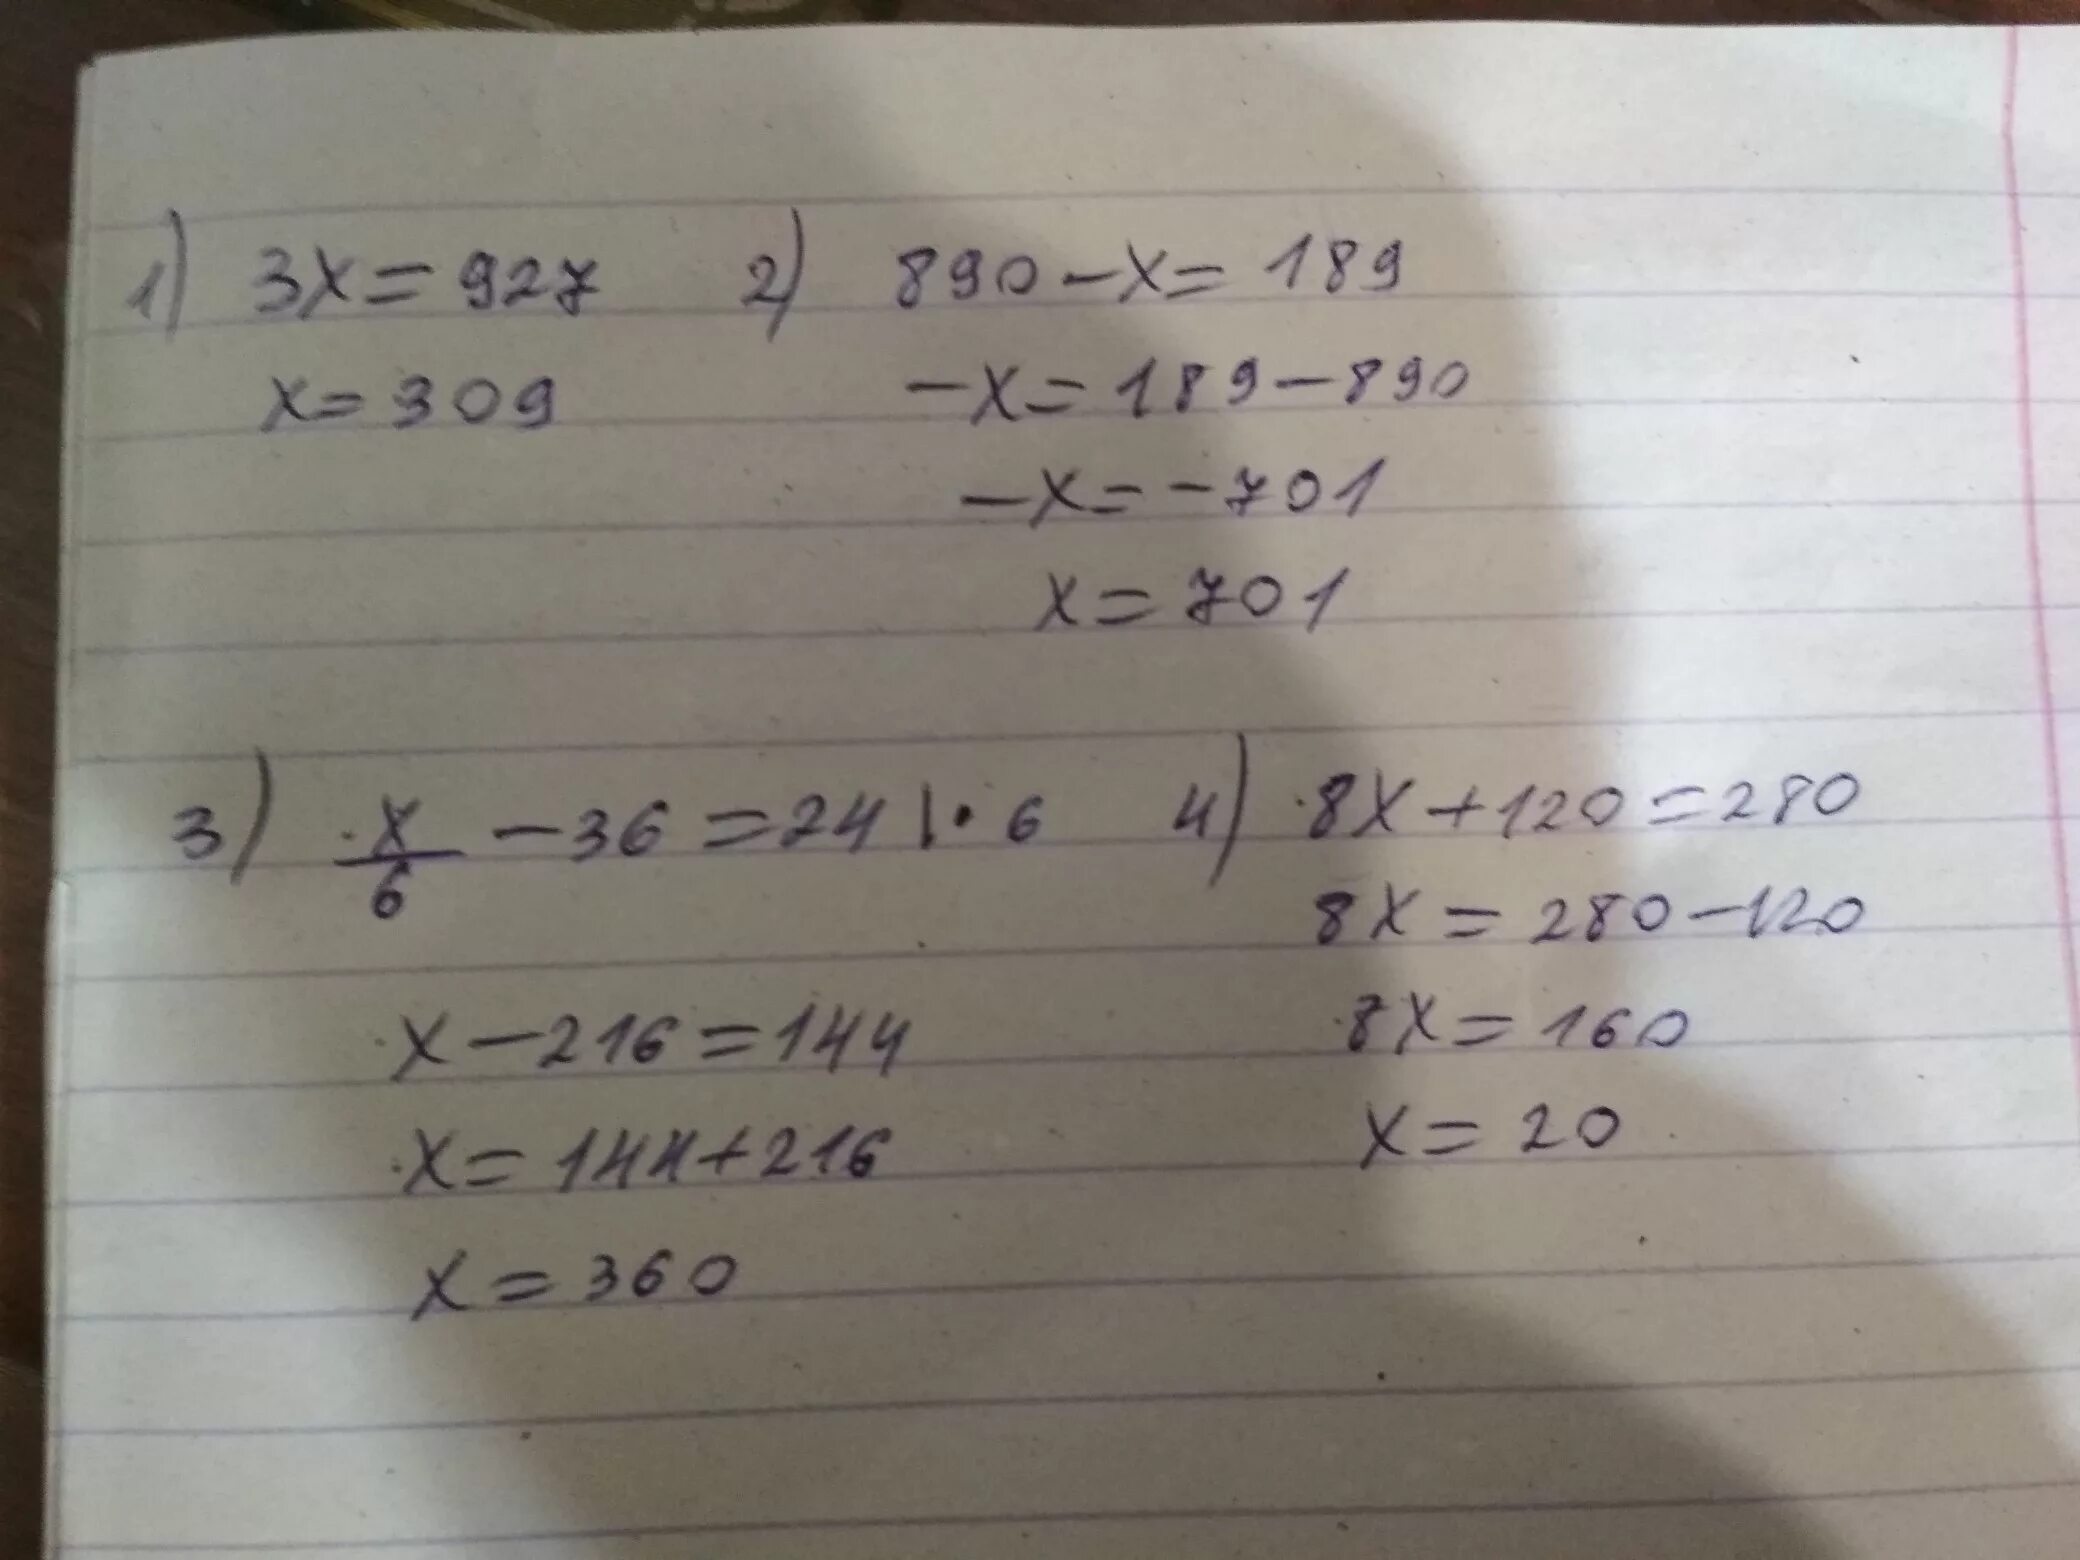 1) 3x = 927
x = 309
2) 890 - x = 189
-x = 189 - 890
-x = -701
x = 701
3) x/6 - 36 = 24 | · 6
x - 216 = 144
x = 144 + 216
x = 360
4) 8x + 120 = 280
8x = 280 - 120
8x = 160
x = 20